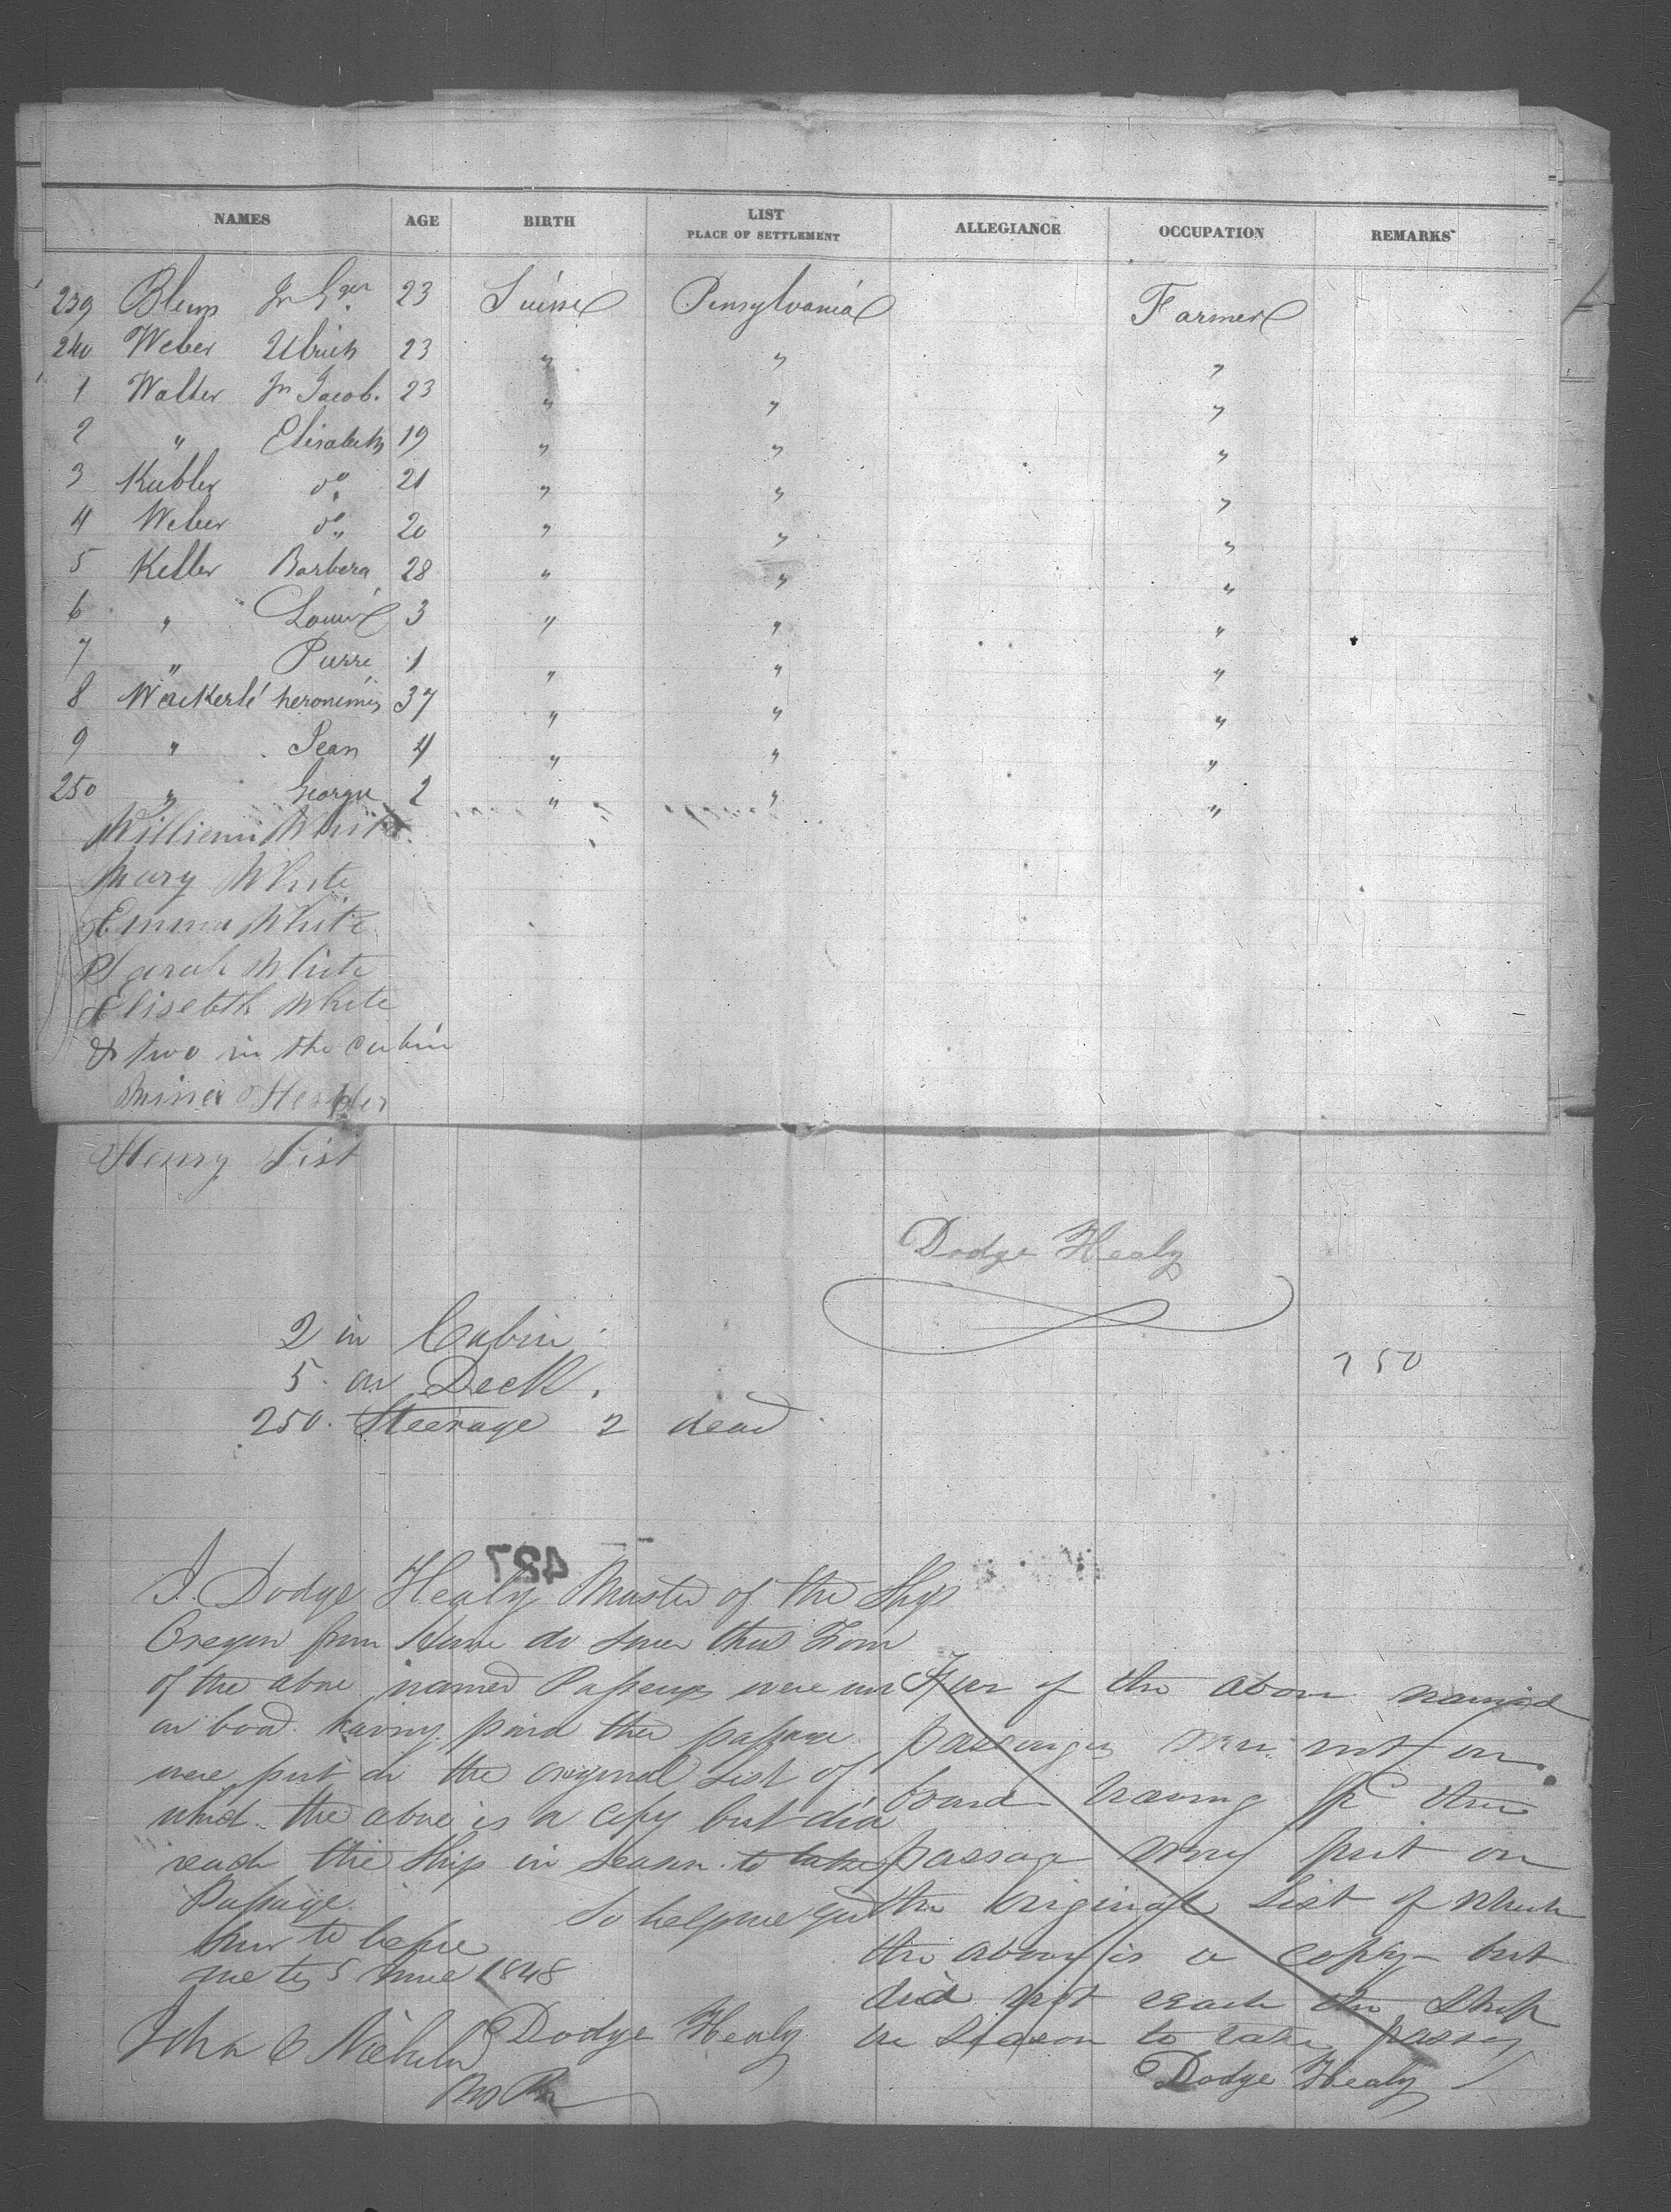 NAMES AGE BIRTH LIST PLACE OF SETTLEMENT ALLEGIANCE OCCUPATION REMARKS
239 Blum 23 Suisse Pensylvania Farmer
240 Weber Ulrich 23 " " "
1 Walter Jn Jacob. 23 " " "
2 " Elisabeth 19 " " "
3 Kubler do 21 " " "
4 Weber do 20 " " "
5 Keller Barbera 28 " " "
6 " Louise 3 " " "
7 " Pierre 1 " " "
8 Wackerlé heronimus 37 " " "
9 " Jean 4 " " "
250 " George 2 " " "
William White
Mary White
Emma White
Sarah White
Elisebth White
& two in the cabin
Henry List
Dodge Healy
2 in Cabin
5 on Deck.
250. Steerage 2 dead
250
427
I. Dodge Healy Master of the Ship
Oregon from Havre do swear that Four
of the above named Passengers were not
on board having paid their passage
were put on the original List of
which the above is a copy but did
reach the Ship in season to take
Passage.
So help me God
Sworn to before
me this 5 June 1848
John C Nichols
Dodge Healy
Four of the above named
passengers were not on
board having pd their
passage were put on
the original List of which
the above is a copy but
did not reach the Ship
in season to take passage
Dodge Healy